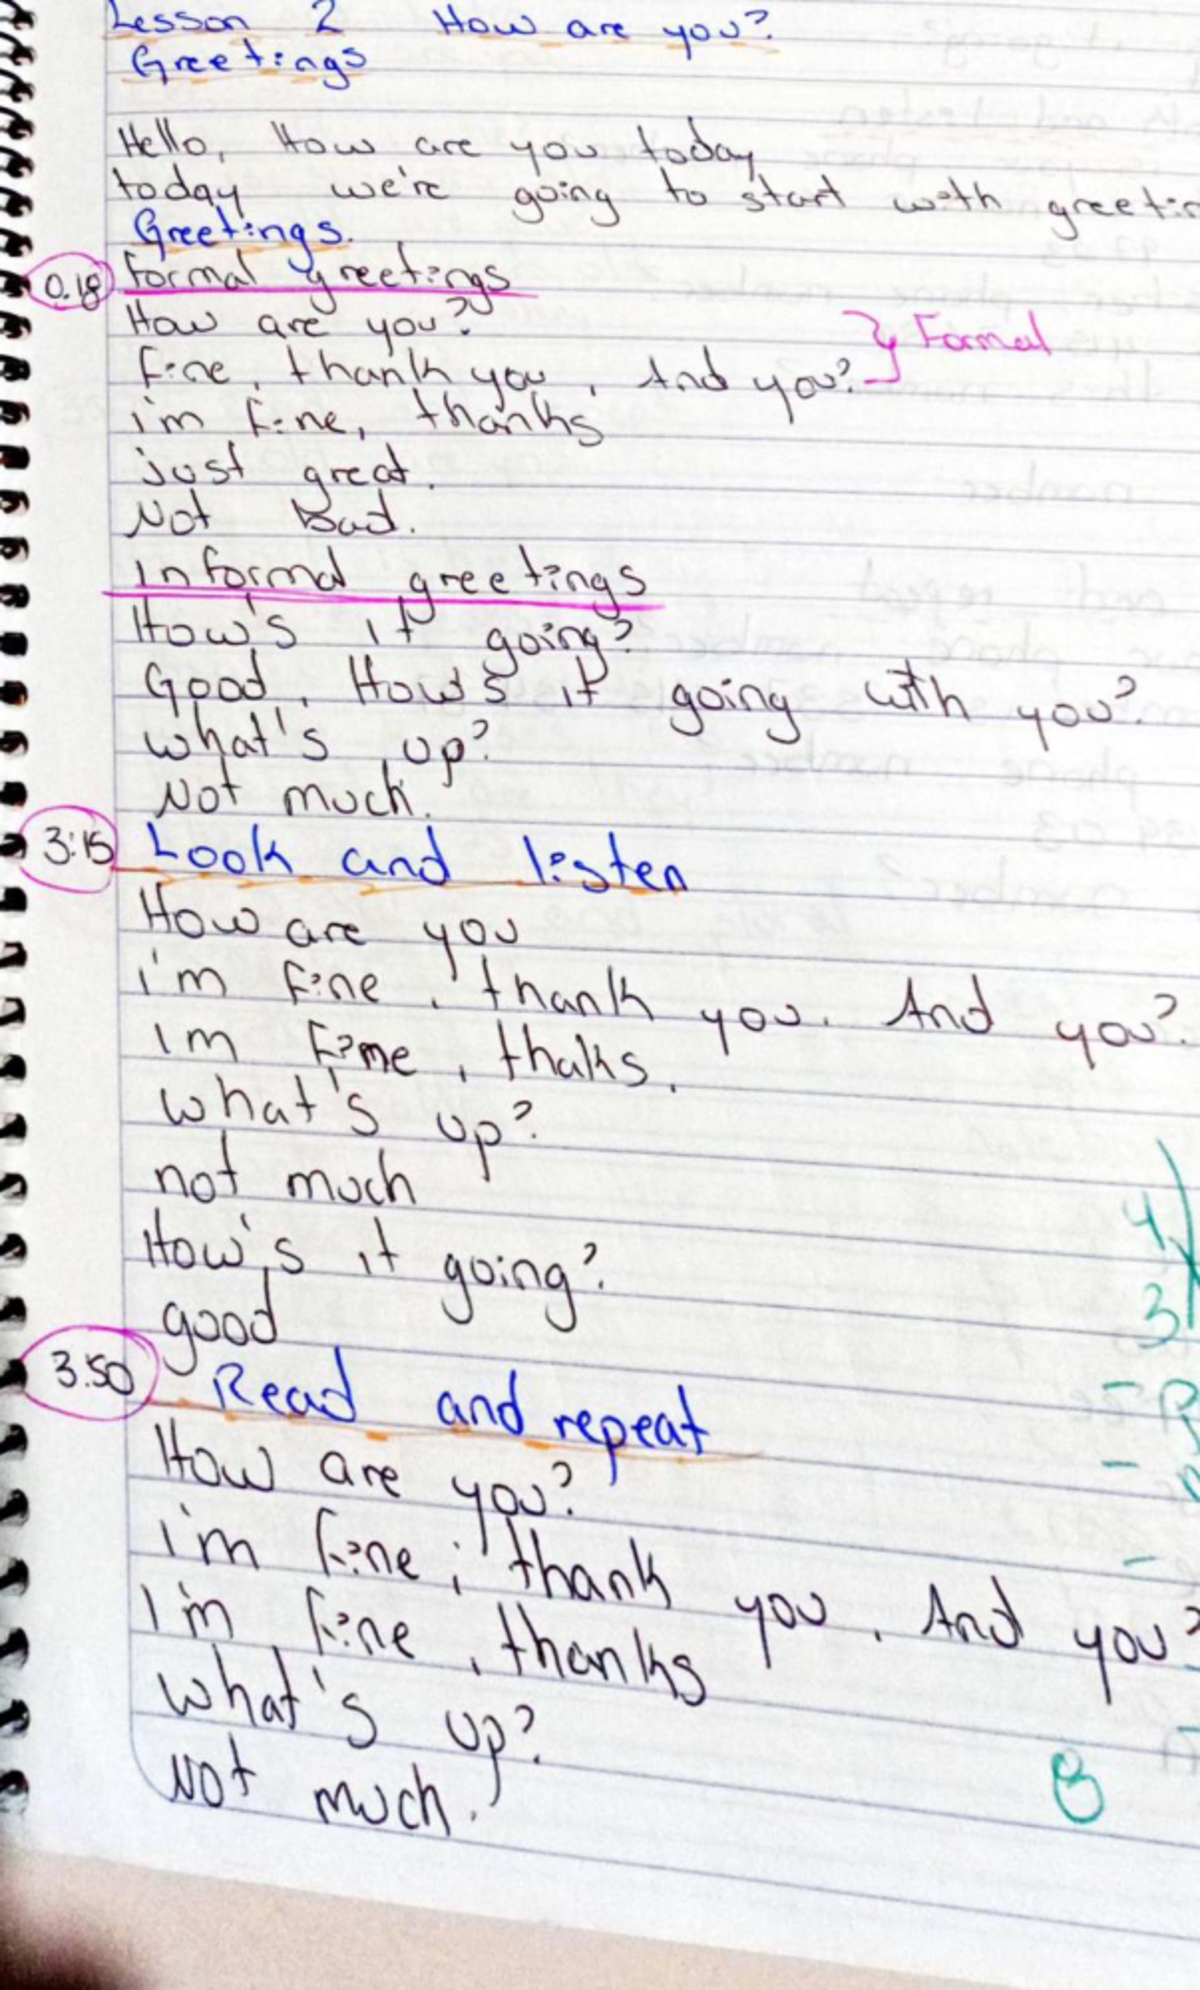 Lesson 2 How are you?
Greetings
Hello, How are you today
today we're going to start with greetin
Greetings.
0.18 formal greetings
How are you?
Fine, thank you, And you? } Formal
i'm fine, thanks
just great.
Not bad.
informal greetings
How's it going?
Good, How's it going with you?
what's up?
Not much.
3:15 Look and listen
How are you
i'm fine, thank you. And you?
Im fime, thaks.
what's up?
not much
How's it going?
good
3.50 Read and repeat
How are you?
i'm fine, thank you. And you?
I'm fine, thanks
what's up?
Not much.
4
3
B